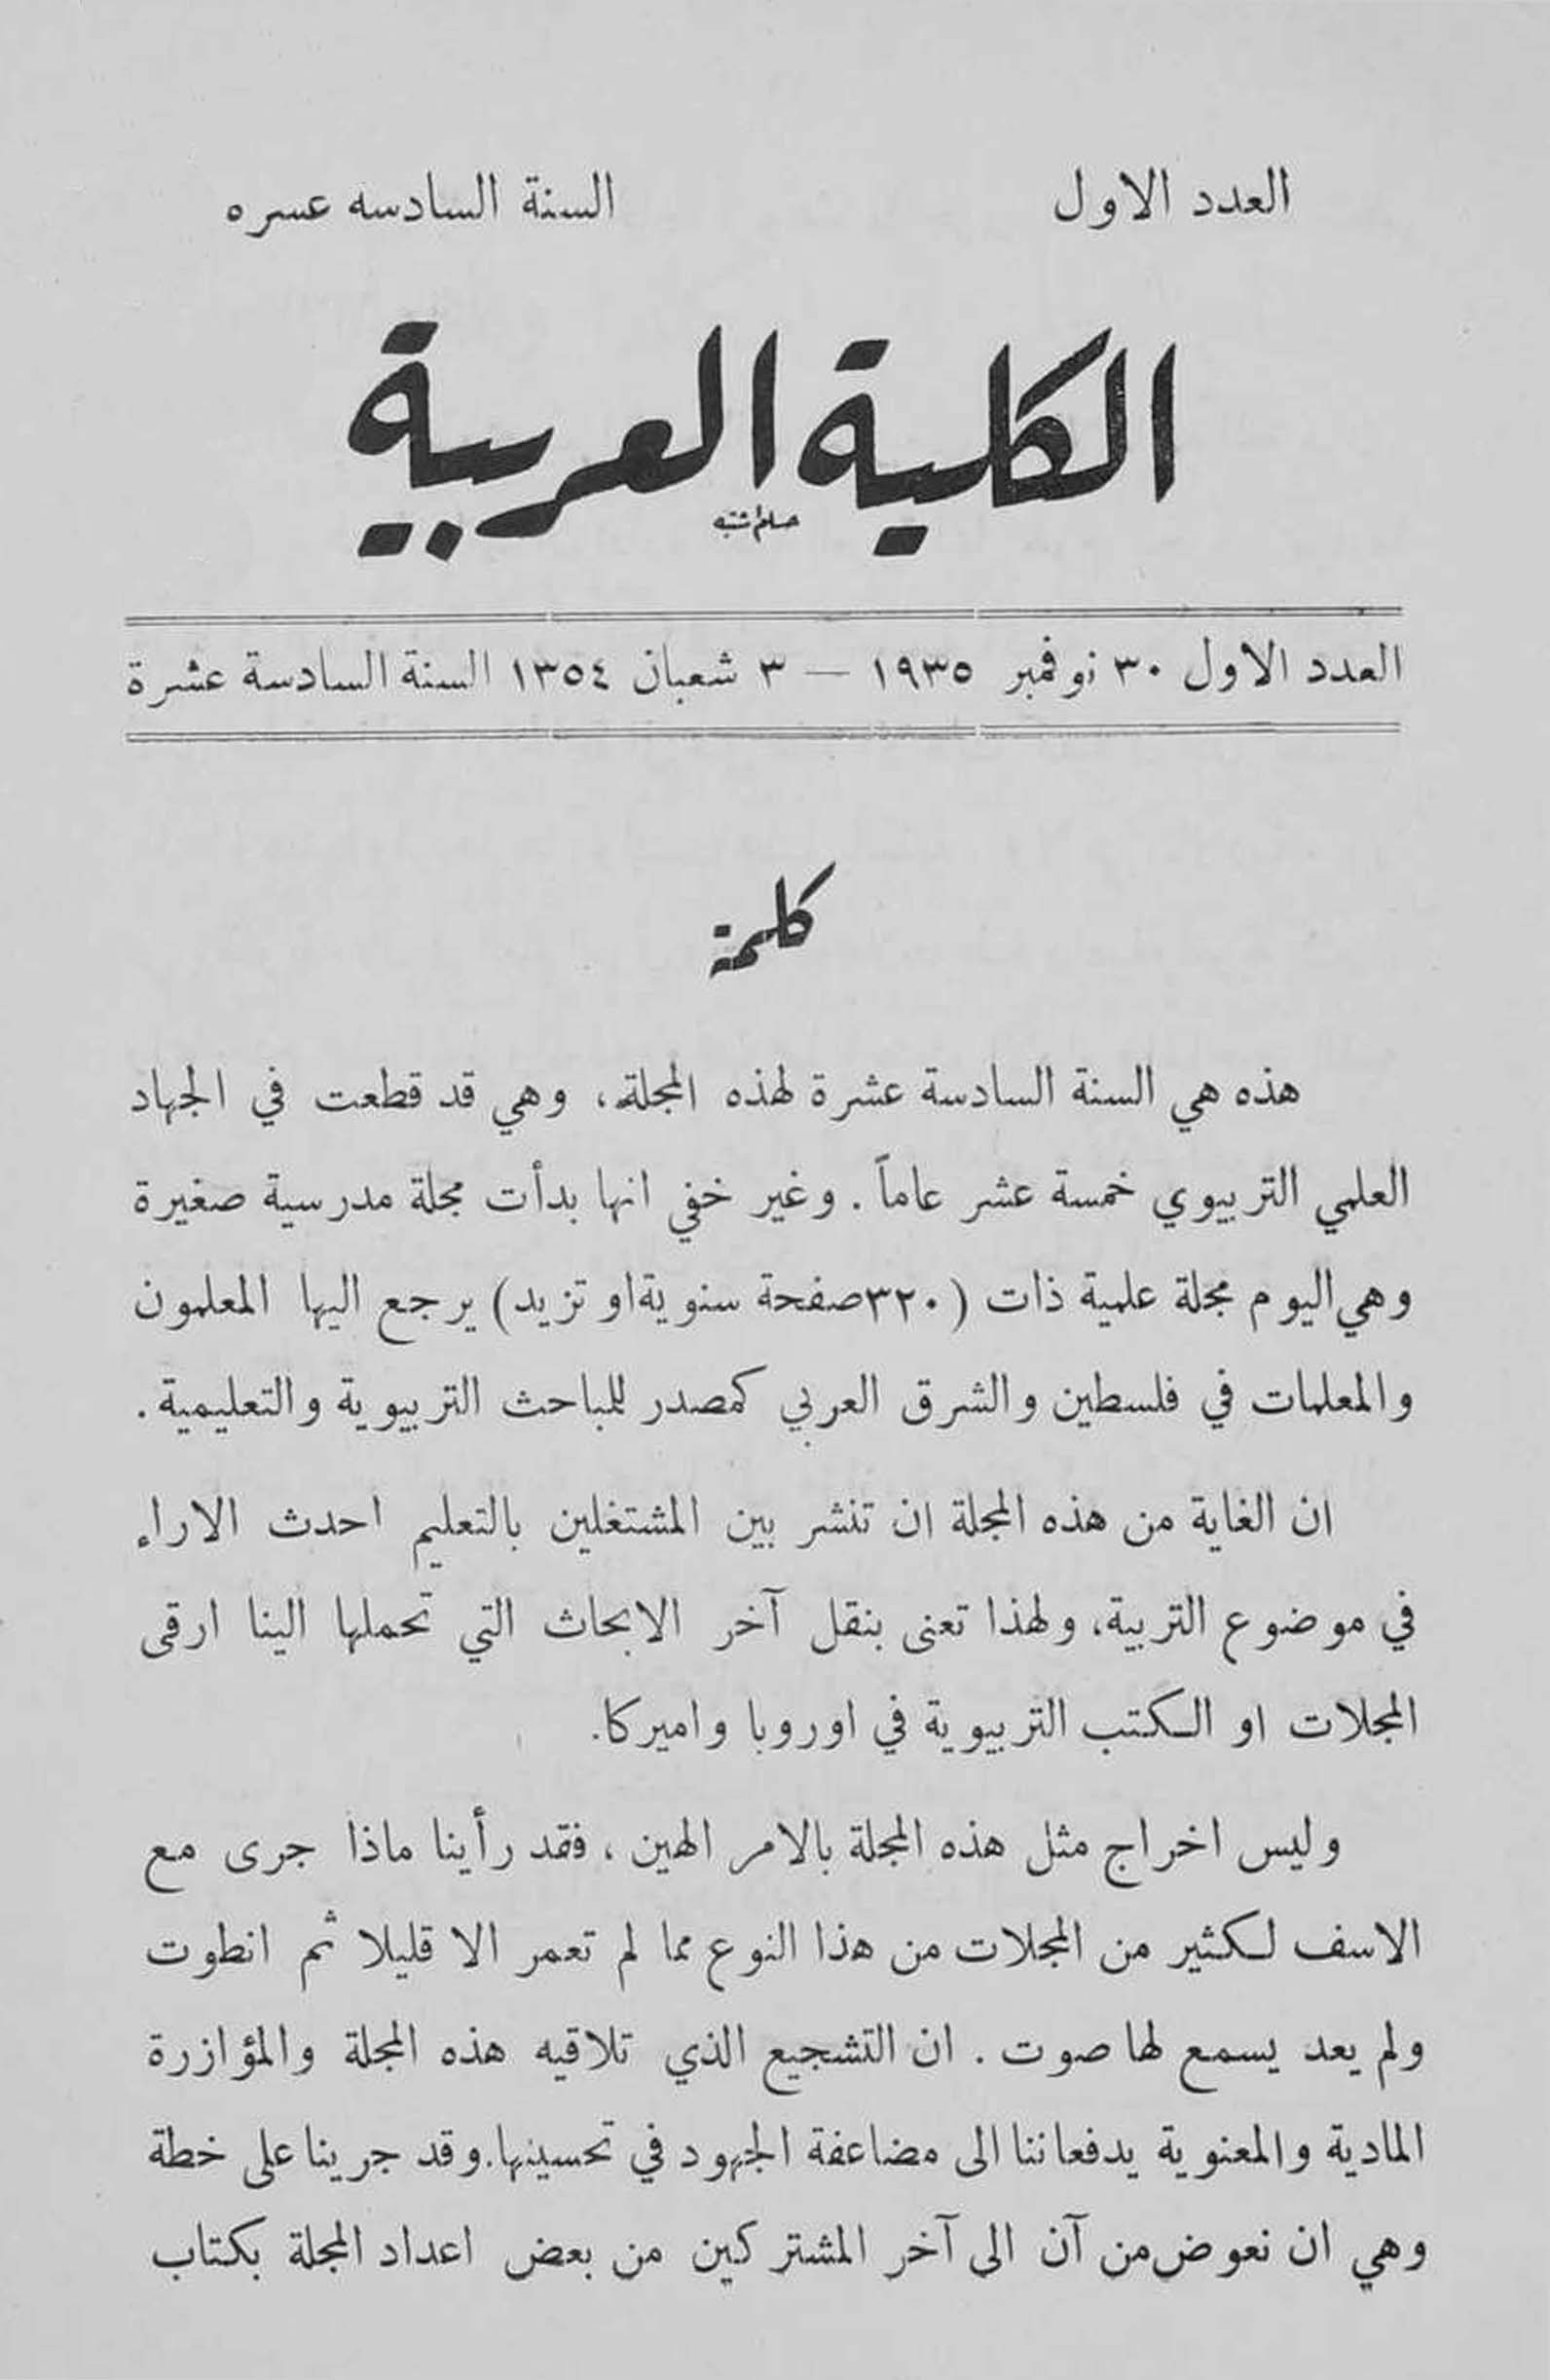 العدد الاول السنة السادسه عسره
الكلية العربية
العدد الاول ٣٠ نوفمبر ١٩٣٥ — ٣ شعبان ١٣٥٤ السنة السادسة عشرة
كلمة
هذه هي السنة السادسة عشرة لهذه المجلة، وهي قد قطعت في الجهاد
العلمي التربيوي خمسة عشر عاماً . وغير خفي انها بدأت مجلة مدرسية صغيرة
وهي اليوم مجلة علمية ذات (٣٢٠ صفحة سنوية او تزيد) يرجع اليها المعلمون
والمعلمات في فلسطين والشرق العربي كمصدر للمباحث التربيوية والتعليمية .
ان الغاية من هذه المجلة ان تنشر بين المشتغلين بالتعليم احدث الاراء
في موضوع التربية، ولهذا تعنى بنقل آخر الابحاث التي تحملها الينا ارقى
المجلات او الكتب التربيوية في اوروبا واميركا.
وليس اخراج مثل هذه المجلة بالامر الهين ، فقد رأينا ماذا جرى مع
الاسف لكثير من المجلات من هذا النوع مما لم تعمر الا قليلا ثم انطوت
ولم يعد يسمع لها صوت . ان التشجيع الذي تلاقيه هذه المجلة والمؤازرة
المادية والمعنوية يدفعاننا الى مضاعفة الجهود في تحسينها. وقد جرينا على خطة
وهي ان نعوض من آن الى آخر المشتركين من بعض اعداد المجلة بكتاب